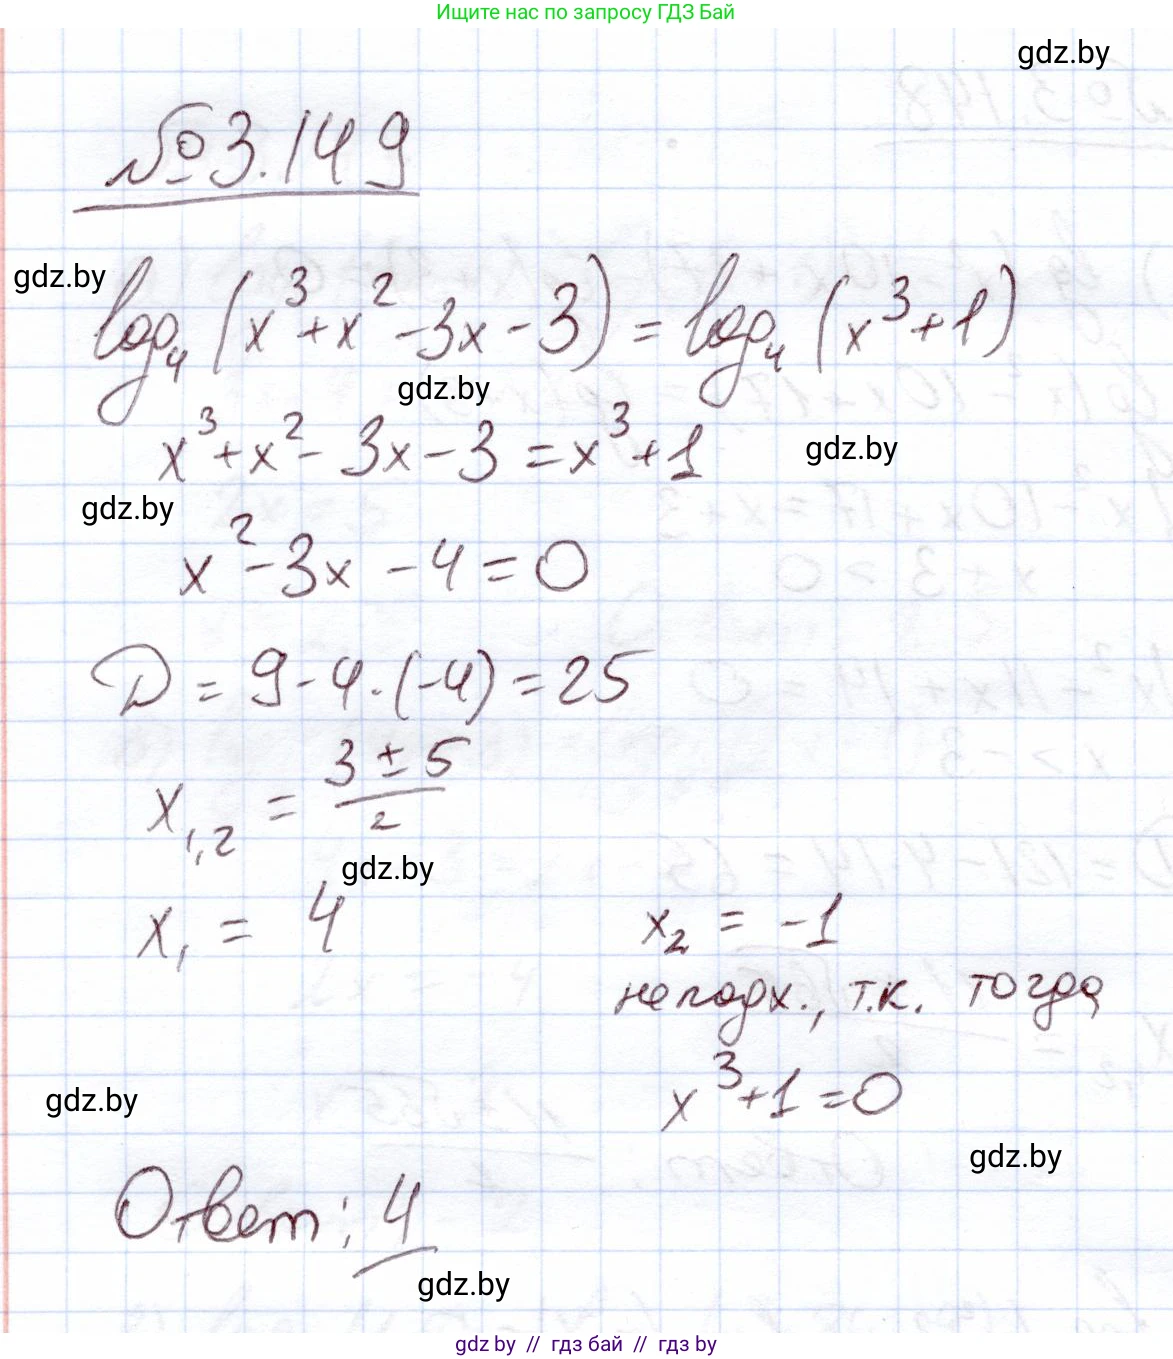 Ищите нас по запросу ГДЗ Бай
gdz.by
№3.149
gdz.by
log₄(x³+x²-3x-3)=log₄(x³+1)
gdz.by
x³+x²-3x-3=x³+1
gdz.by
gdz.by
x²-3x-4=0
D=9-4·(-4)=25
x₁,₂ = (3±5)/2
gdz.by
x₁ = 4
x₂ = -1
не подх., т.к. тогда
x³+1=0
gdz.by
gdz.by
Ответ: 4
gdz.by
gdz.by // гдз бай // гдз by